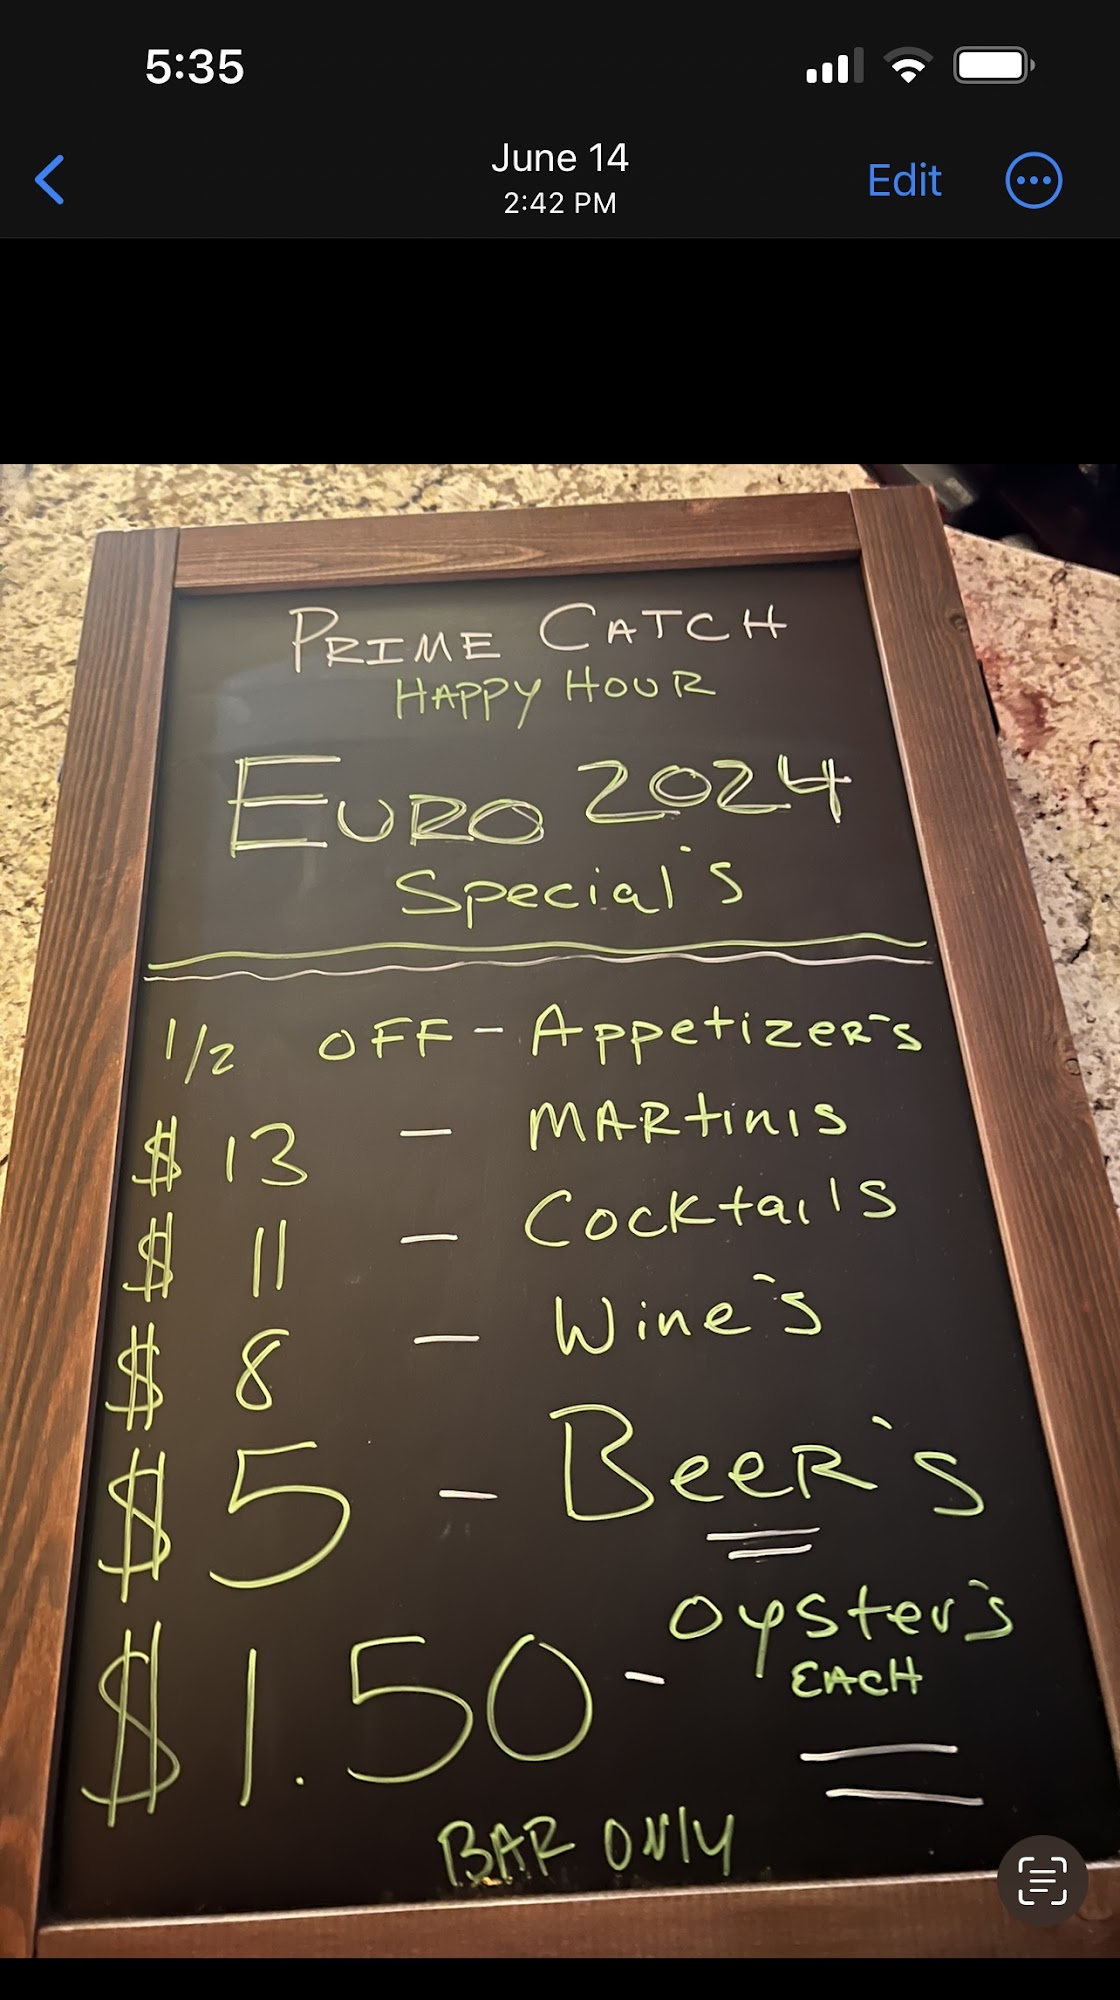 5:35
June 14
2:42 PM
Edit
PRIME CATCH
HAPPY HOUR
EURO 2024
Special's
1/2 OFF - Appetizer's
$ 13 - MARtinis
$ 11 - Cocktails
$ 8 - Wine's
$ 5 - BeeR's
$1.50 - oyster's
EACH
BAR ONly